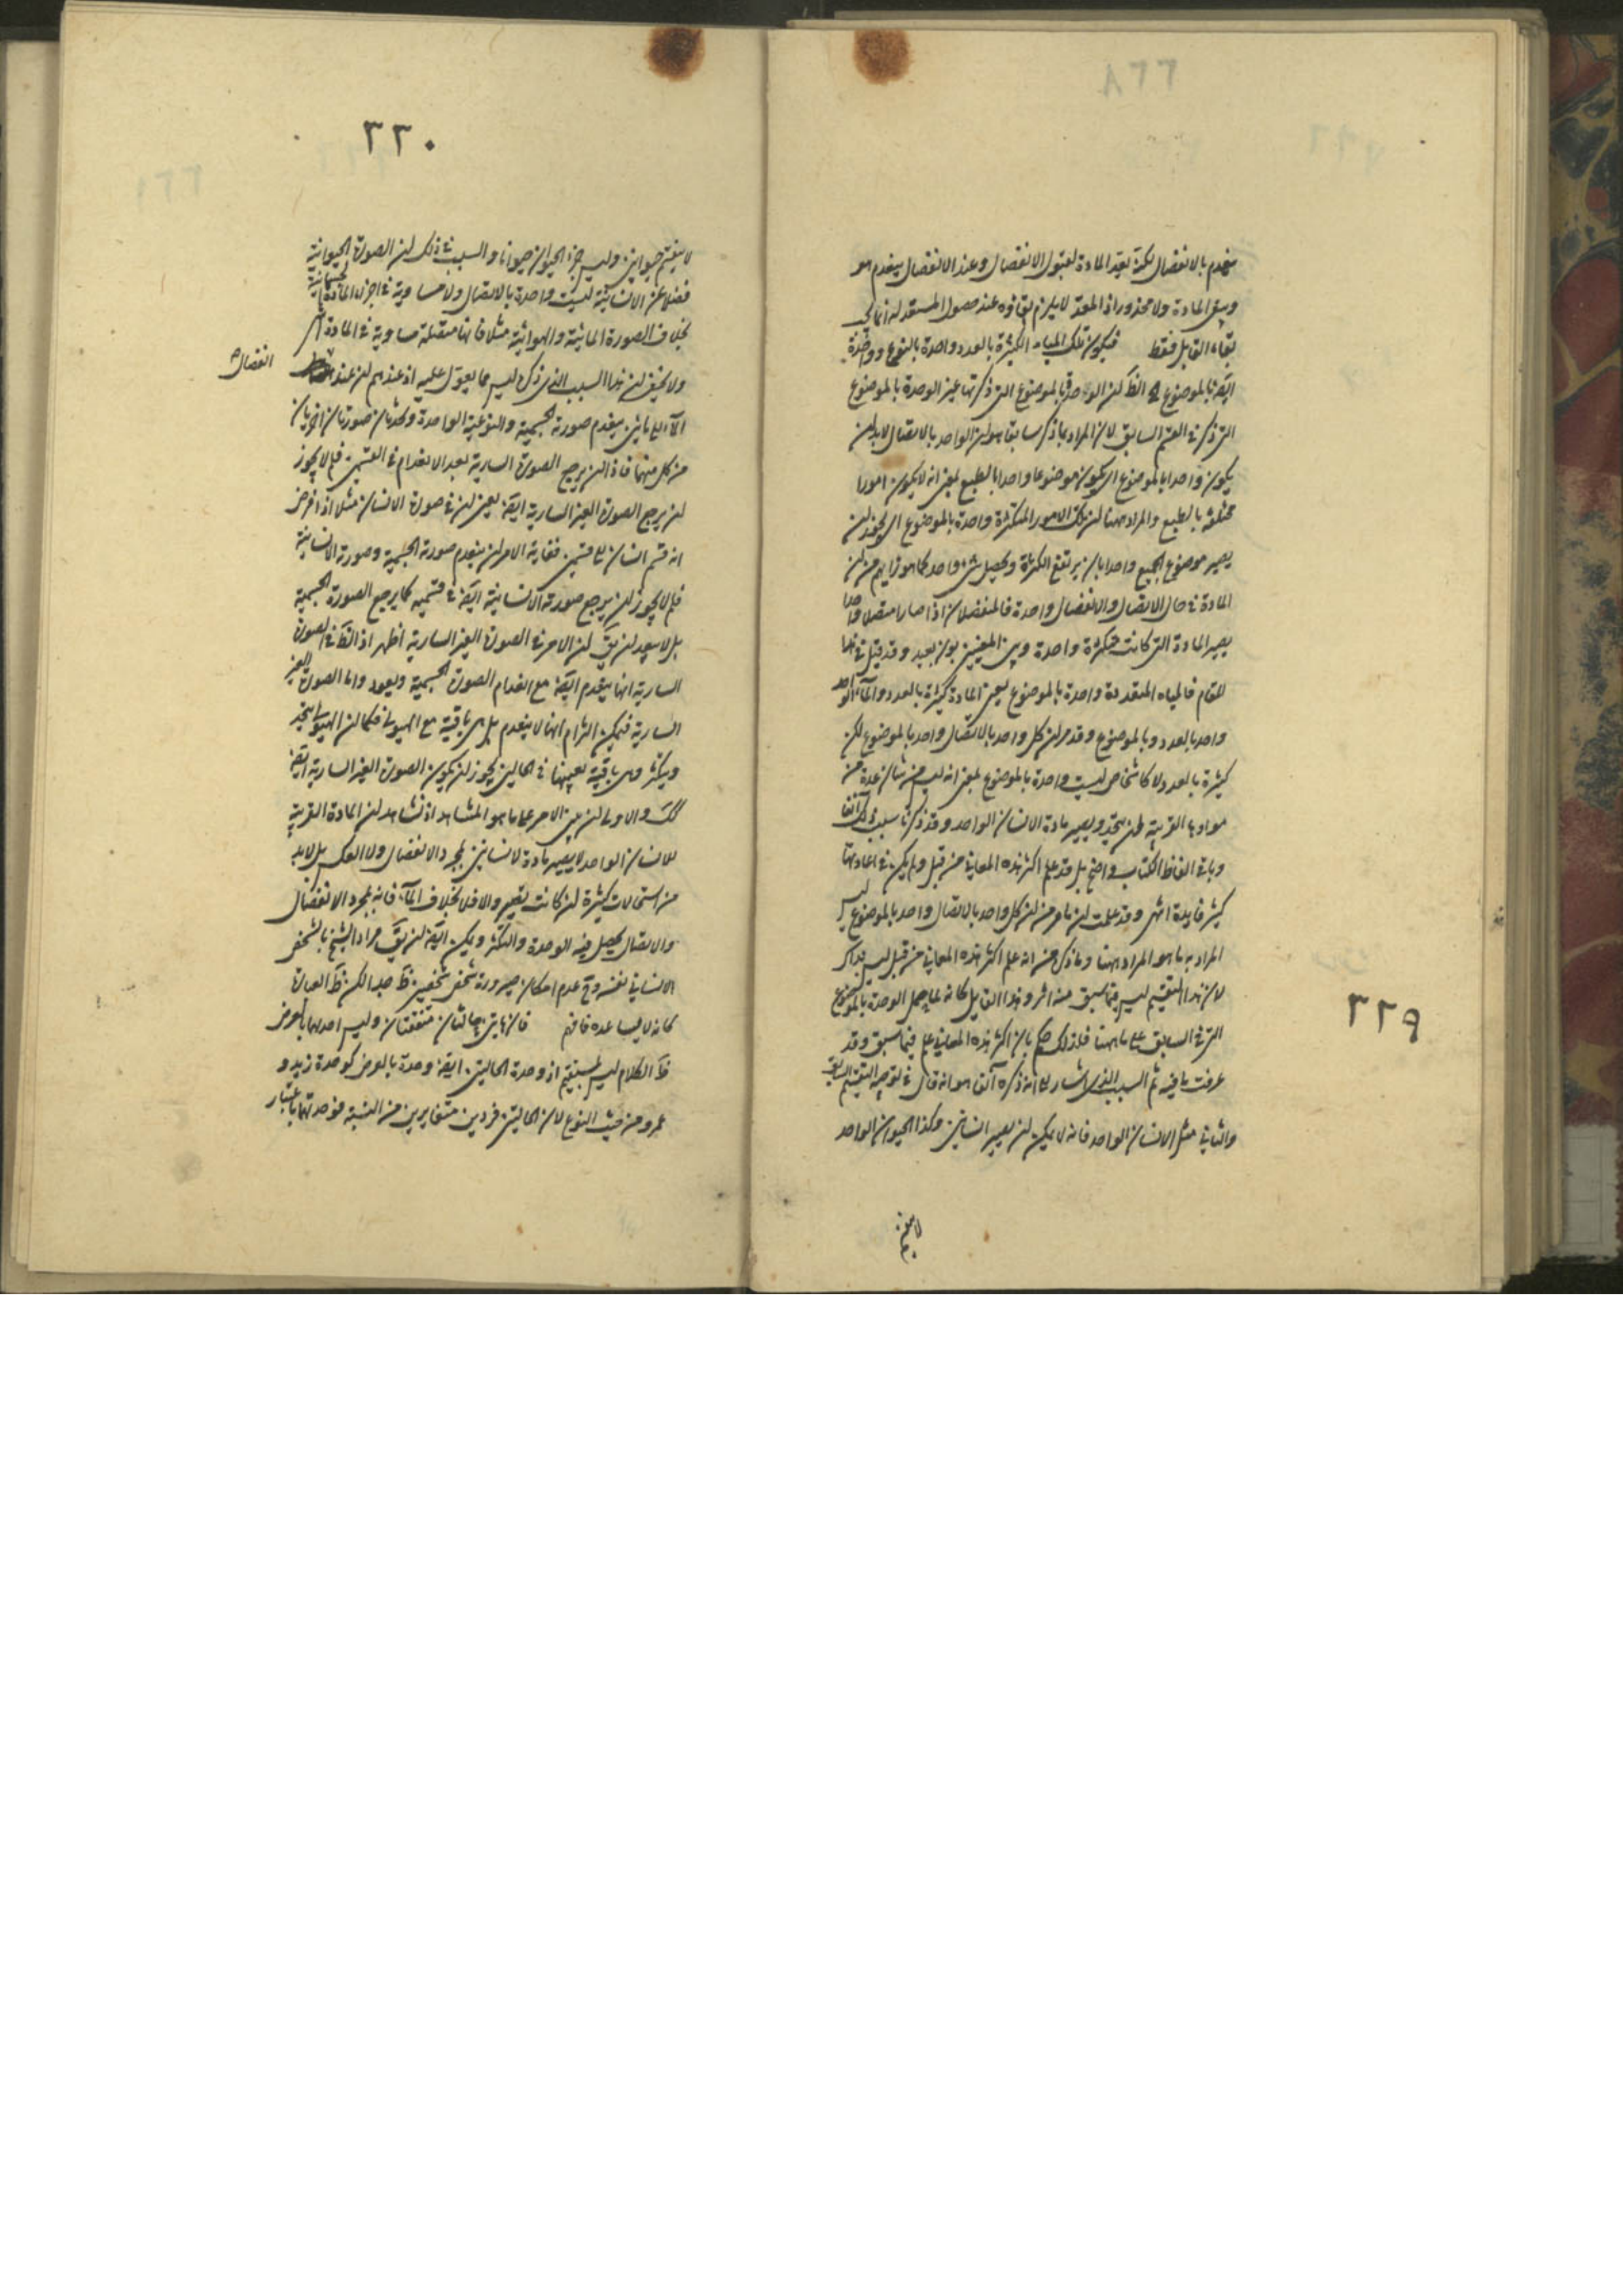 ينعدم بالانفصال لكنه يعد المادة لقبول الانفصال وعند الانفصال ينعدم هو
ويبقى المادة ولا محذور اذ المعد لا يلزم بقاؤه عند حصول المستعد له انما يجب
بقاء القابل فقط فيكون تلك المياه الكثيرة بالعدد واحدة بالنوع وواحدة
ايضا بالموضوع الظ لن الواحد بالموضوع التى ذكرتها غير الوحدة بالموضوع
التى ذكر فى القسم السابق لان المراد بما ذكر سابقا هو لن الواحد بالاتصال لابد لن
يكون واحدا بالموضوع اى يكون موضوعا واحدا بالطبع بمعنى انه لا يكون امورا
مختلفة بالطبع والمراد ههنا لن تلك الامور المتكثرة واحدة بالموضوع اى يجوز لن
يصير موضوع الجميع واحدا بان يرتفع الكثرة ويحصل شئ واحد كما هو رايهم من لن
المادة فى حال الاتصال والانفصال واحدة فالمنفصلان اذا صارا متصلا واحدا
يصير المادة التى كانت متكثرة واحدة وبين المعنيين بون بعيد وقد قيل فى هذا
المقام فالمياه المتعددة واحدة بالموضوع يعنى المادة كثيرة بالعدد والماء الواحد
واحد بالعدد وبالموضوع وقد مر لن كل واحد بالاتصال واحد بالموضوع لكن
كثيرة بالعدد ولا كاشخاص ليست واحدة بالموضوع بمعنى انه ليس من شان عدة من
موادها القريبة لن يتحد ويصير مادة الانسان الواحد وقد ذكرنا سبب ذلك آنفا
وباقى الفاظ الكتاب واضح بل قد علم اكثر هذه المعانى من قبل ولم يكن فى اعادتها
كثير فايدة انتهى وقد علمت لن ما مر من لن كل واحد بالاتصال واحد بالموضوع ليس
المراد به ما هو المراد ههنا وما ذكر من انه علم اكثر هذه المعانى من قبل ليس بذاك
لان هذا التقسيم ليس فيما سبق منه اثر وهذا القايل كانه لما حمل الوحدة بالموضوع
التى فى السابق على ما ههنا فلذلك حكم بان اكثر هذه المعانى علم فيما سبق وقد
عرفت ما فيه ثم السبب الذى اشار الى انه ذكره آنفا هو انه قال فى توجيه التقسيم السابق
والثانى مثل الانسان الواحد فانه لا يمكن لن يصير انسانين وكذا الحيوان الواحد
لا ينقسم
٣٢٩
٣٣٠
لا ينقسم حيوانين وليس جزء الحيوان حيوانا والسبب فى ذلك لن الصورة الحيوانية
فضلا عن الانسانية ليست واحدة بالاتصال ولا مساوية فى اجزاء المادة الجسمانية
بخلاف الصورة المائية والهوائية مثلا فانها متصلة مساوية فى المادة آه
ولا يخفى لن هذا السبب الذى ذكر ليس مما يعول عليه اذ عندهم لن عند
انفصال
الماء الى مائين ينعدم صورته الجسمية والنوعية الواحدة ويحدث صورتان اخريان
من كل منهما فاذا لن يرجع الصورة السارية بعد الانعدام فى القسمين فلم لا يجوز
لن يرجع الصورة الغير السارية ايضا يعنى لن فى صورة الانسان مثلا اذا فرض
انه قسم انسان الى قسمين فغاية الامر لن ينعدم صورته الجسمية وصورته الانسانية
فلم لا يجوز لن يرجع صورته الانسانية ايضا فى قسميه كما يرجع الصورة الجسمية
بل لا يبعد لن يق لن الامر فى الصورة الغير السارية اظهر اذ الظ فى الصورة
السارية انها ينعدم ايضا مع انعدام الصورة الجسمية ويعود واما الصورة الغير
السارية فيمكن التزام انها لا ينعدم بل هى باقية مع الهيولى فكما لن الهيولى يتحد
ويتكثر وهى باقية بعينها فى الحالين يجوز لن يكون الصورة الغير السارية ايضا
كك والاولى لن يبنى الامر على ما هو المشاهد اذ نشاهد لن المادة القريبة
للانسان الواحد لا يصير مادة لانسانين بمجرد الانفصال ولا العكس بل لابد
من استحالات كثيرة لن كانت تصير والا فلا بخلاف الماء فانه بمجرد الانفصال
والاتصال يحصل فيه الوحدة والتكثر ويمكن ايضا لن يق مراد الشيخ بالشخص
الانسانى نفسه وح عدم امكان صيرورة شخص شخصين ظ جدا لكن ظ العبارة
كانه لا يساعده فافهم فان هاتين حالتان متفقتان وليس احدهما بالعرض
ظ الكلام ليس بمستقيم اذ وحدة الحالتين ايضا وحدة بالعرض كوحدة زيد و
عمرو من حيث النوع لان الحالتين فردين متغايرين من النسبة فوحدتهما باعتبار